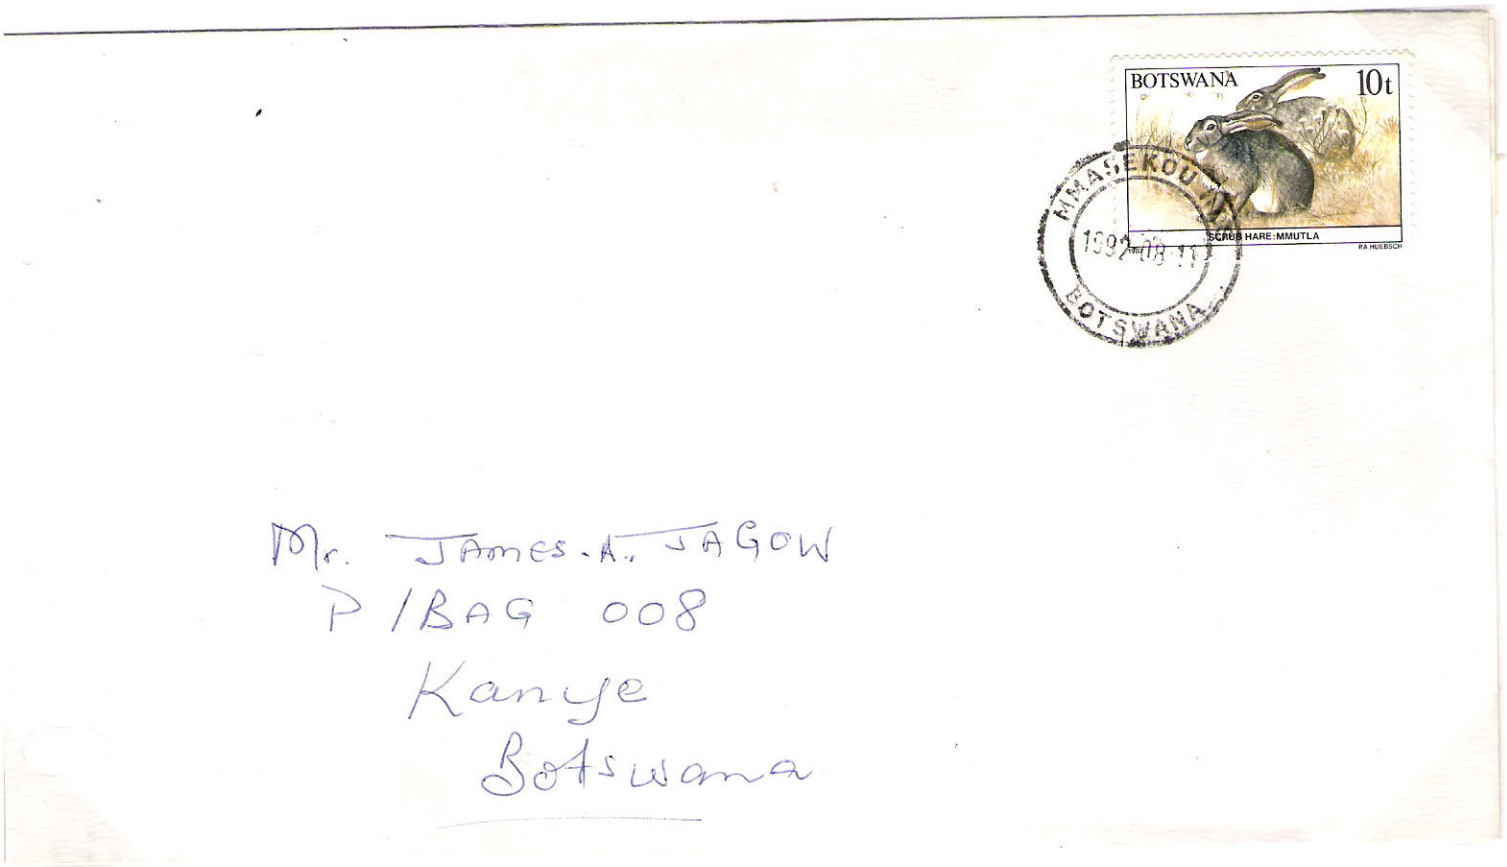 BOTSWANA 10t
SCRUB HARE:MMUTLA
P.A HUEBSCH
1992-08-11
BOTSWANA
Mr. JAMES.A. JAGOW
P/BAG 008
Kanye
Botswana